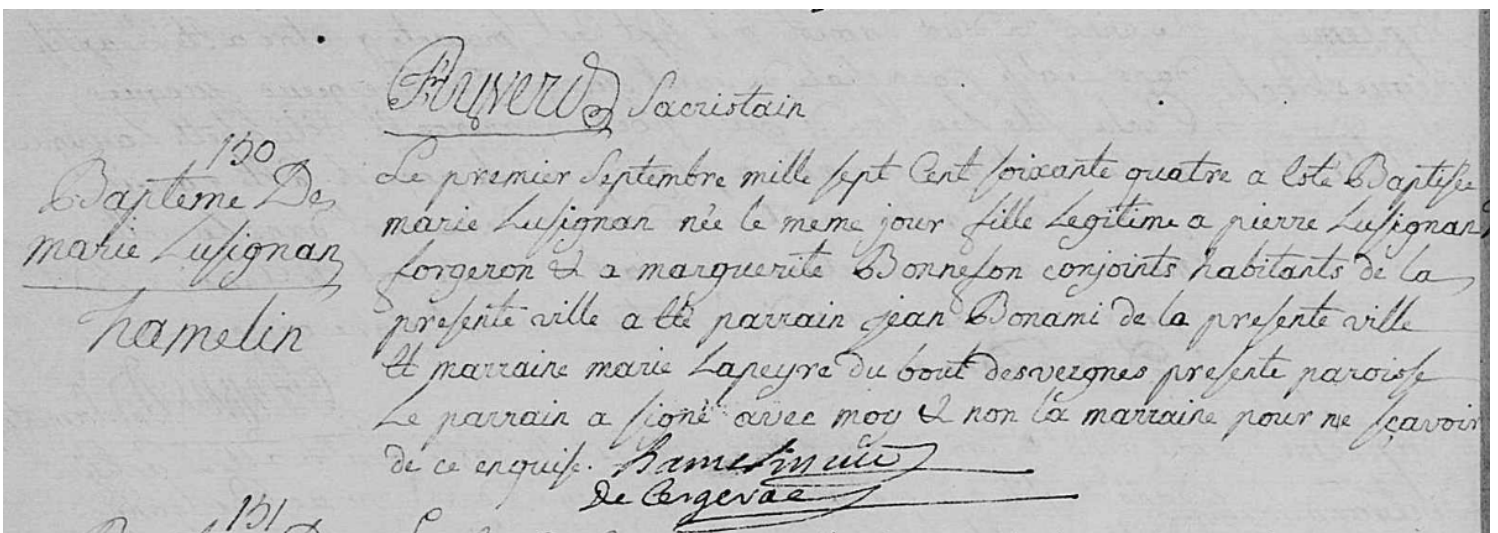 Sacristain
130
Bapteme De
marie Lusignan
hamelin
Le premier Septembre mille sept Cent soixante quatre a Esté Baptisée
marie Lusignan née le meme jour fille Legitime a pierre Lusignan
forgeron & a marguerite Bonnefon conjoints habitants de la
presente ville a été parrain jean Bonami de la presente ville
Et marraine marie Lapeyre du bout desvergnes presente paroisse
Le parrain a signé avec moy & non la marraine pour ne sçavoir
de ce enquise. hamelin curé
de Bergerac
131